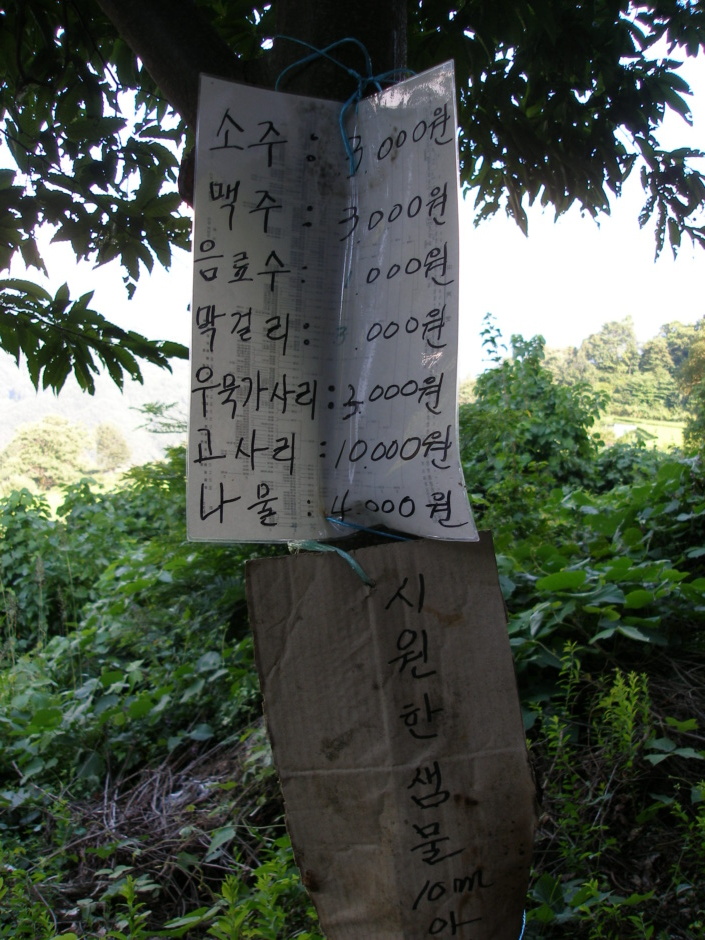 소주 : 3.000원
맥주 : 3.000원
음료수 : 1.000원
막걸리 : 3.000원
우묵가사리 : 3.000원
고사리 : 10.000원
나물 : 4.000원
시
원
한
샘
물
10m
아